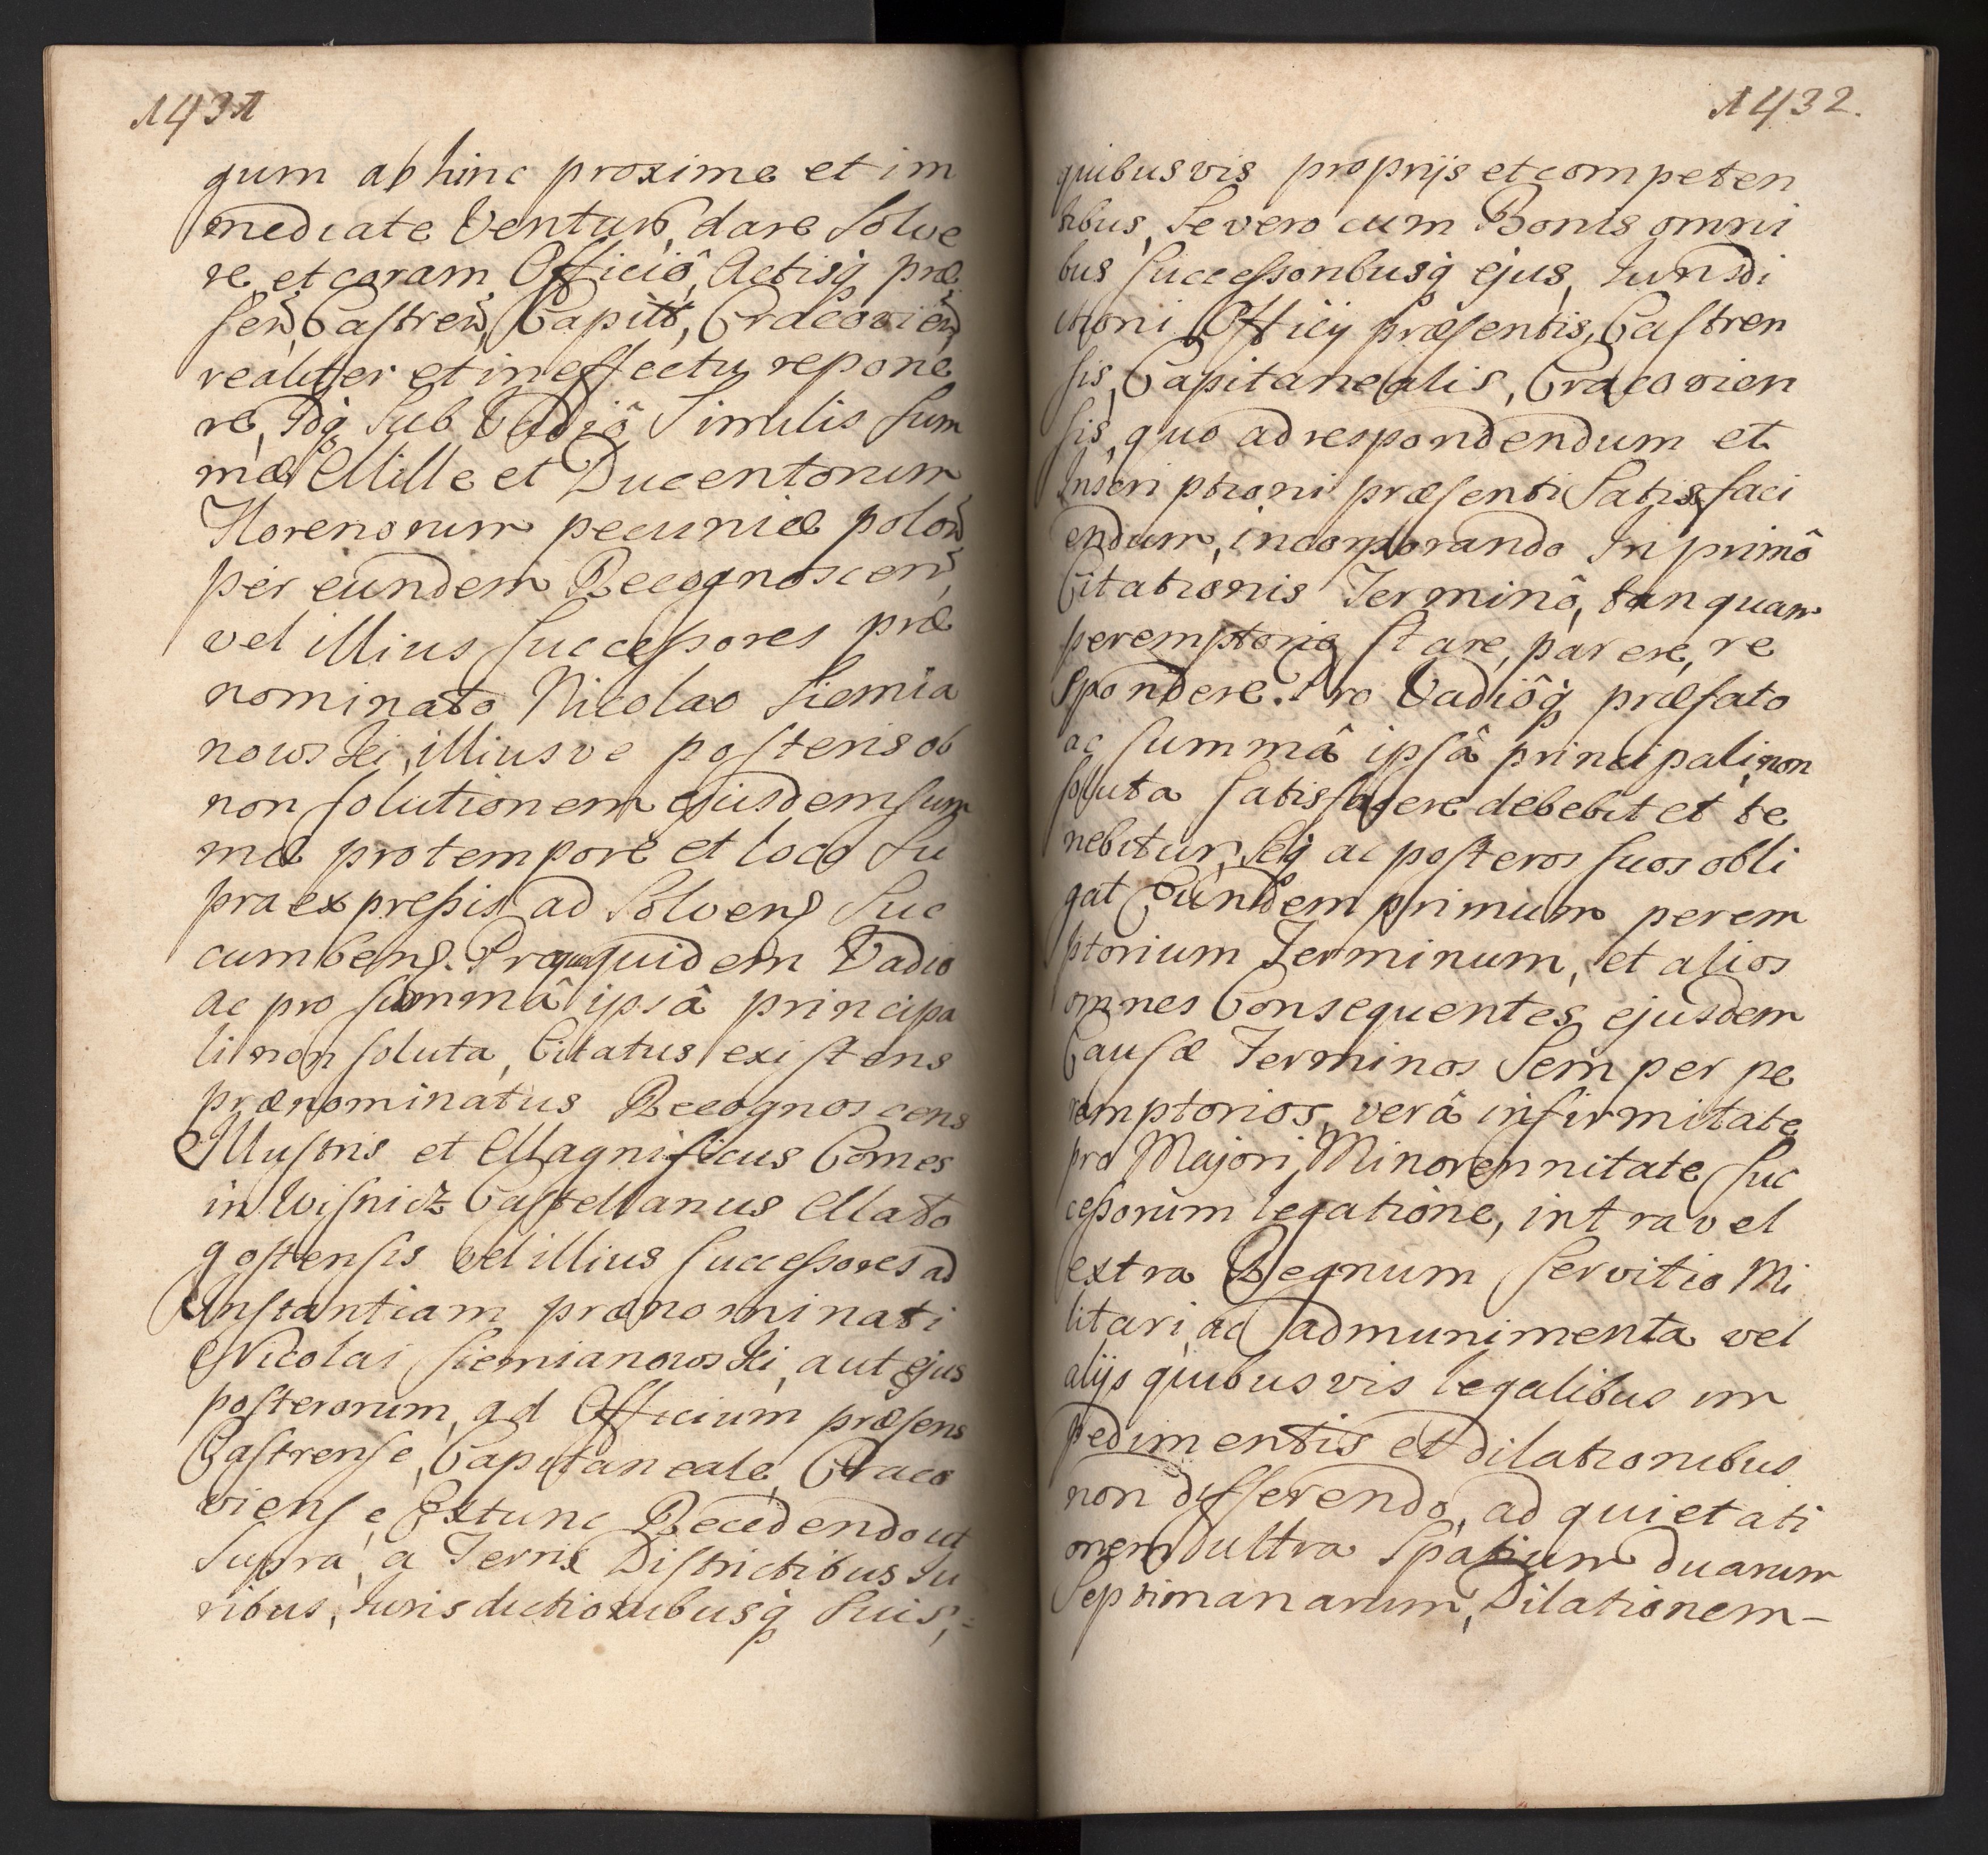 1431
gum abhinc proxime et im
mediate Ventur, dare solve
re, et coram Officiô, Actisq̃ præ
sen̄, Castren̄, Capit̄, Cracovien̄
realiter et in effectu repone
re, Idq̃ sub Vadiô similis sum
mæ Mille et Ducentorum
Florenorum pecuniæ polon̄
per eundem Recognoscen̄,
vel illius successores præ
nominato Nicolao Siemia
nowski, illiusve posteris ob
non solutionem ejusdem sum
mæ pro tempore et loco su
pra expressis ad solven suc
cumben. Pro quidem Vadio
ac pro summâ ipsâ principa
li non soluta, Citatus existens
prænominatus Recognoscens
Illustris et Magnificus Comes
in Wisnicz Castellanus Mało
gostensis vel illius successores ad
Instantiam prænominati
Nicolai Siemianowski, aut ejus
posterorum, ad Officium præsens
Castrense, Capitaneale, Craco
viense Extunc Recedendo ut
supra, a Terris Districtibus Ju
ribus, Jurisdictionibusq̃ suis,=
1432.
quibusvis proprijs et competen
tibus, Se vero cum Bonis omni
bus successoribusq̃ ejus, Jurisdi
ctioni Officij præsentis, Castren
sis, Capitanealis, Cracovien
sis, quo ad respondendum et
Inscriptioni præsenti satisfaci
endum, incorporando In primô
Citationis Terminô, tanquam
peremptorio stare, parere, re
spondere. Pro Vadiôq̃ præfato
ac summâ ipsâ principali, non
soluta satisfacere debebit et te
nebitur, Seq̃ ac posteros suos obli
gat Eundem primum perem
ptorium Terminum, et alios
omnes Consequentes ejusdem
Causæ Terminos semper pe
remptorios, verâ infirmitate
pro Majori, Minorennitate suc
cessorum legatione, intra vel
extra Regnum servitio Mi
litari, ac ad munimenta vel
alijs quibusvis legalibus im
pedimentis et dilationibus
non differendo, ad quietati
onem ultra spatium duarum
septimanarum, Dilationem-